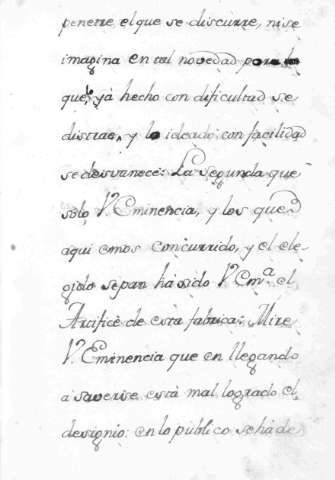 penetre, el que se discurre, ni se
imagina en tal novedad por lo
que ya hecho con dificultad se
distrae, y lo ideado con facilidad
se desvanece: La segunda que
solo V. Eminencia, y los que
aqui emos concurrido, y el ele-
gido sepan ha sido V. Emª. el
Artifice de esta fabrica: Mire
V. Eminencia que en llegando
a saverse está mal logrado el
designio: en lo publico se ha de